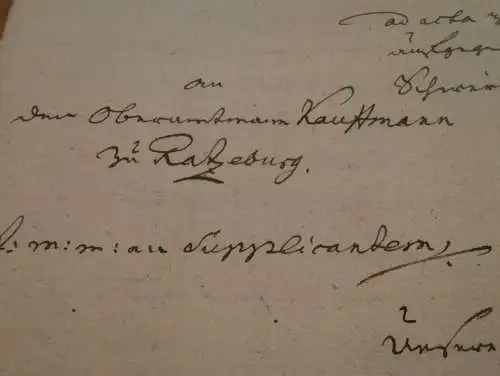 ad acta
Schwer
an
den Oberamtmann Kauffmann
zu Ratzeburg.
m: m: an Supplicandem,
2
Unsere